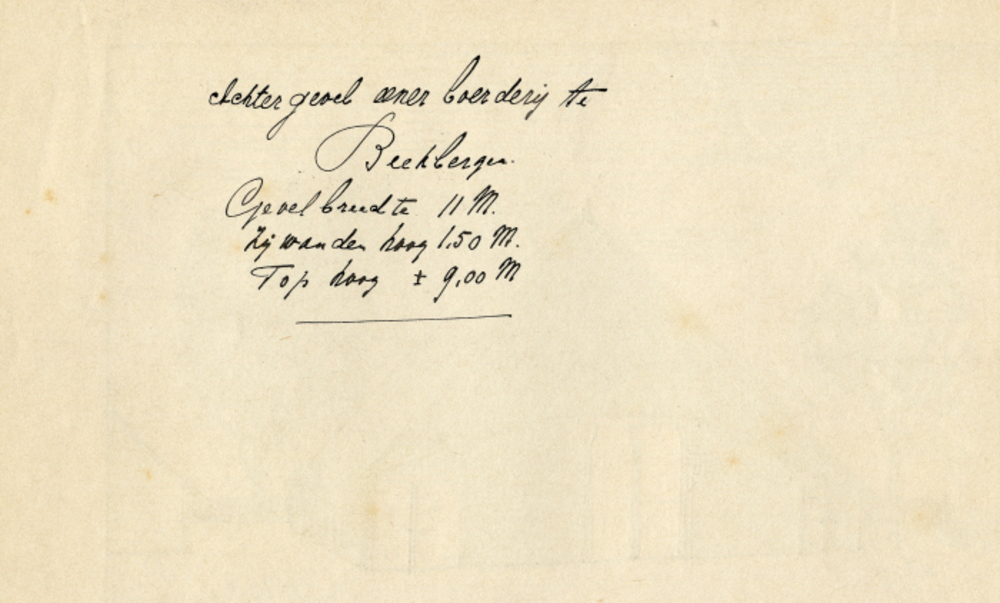 Achtergevel eener boerderij te
Beekbergen.
Gevelbreedte 11 M.
Zijwanden hoog 1.50 M.
Top hoog ± 9,00 M